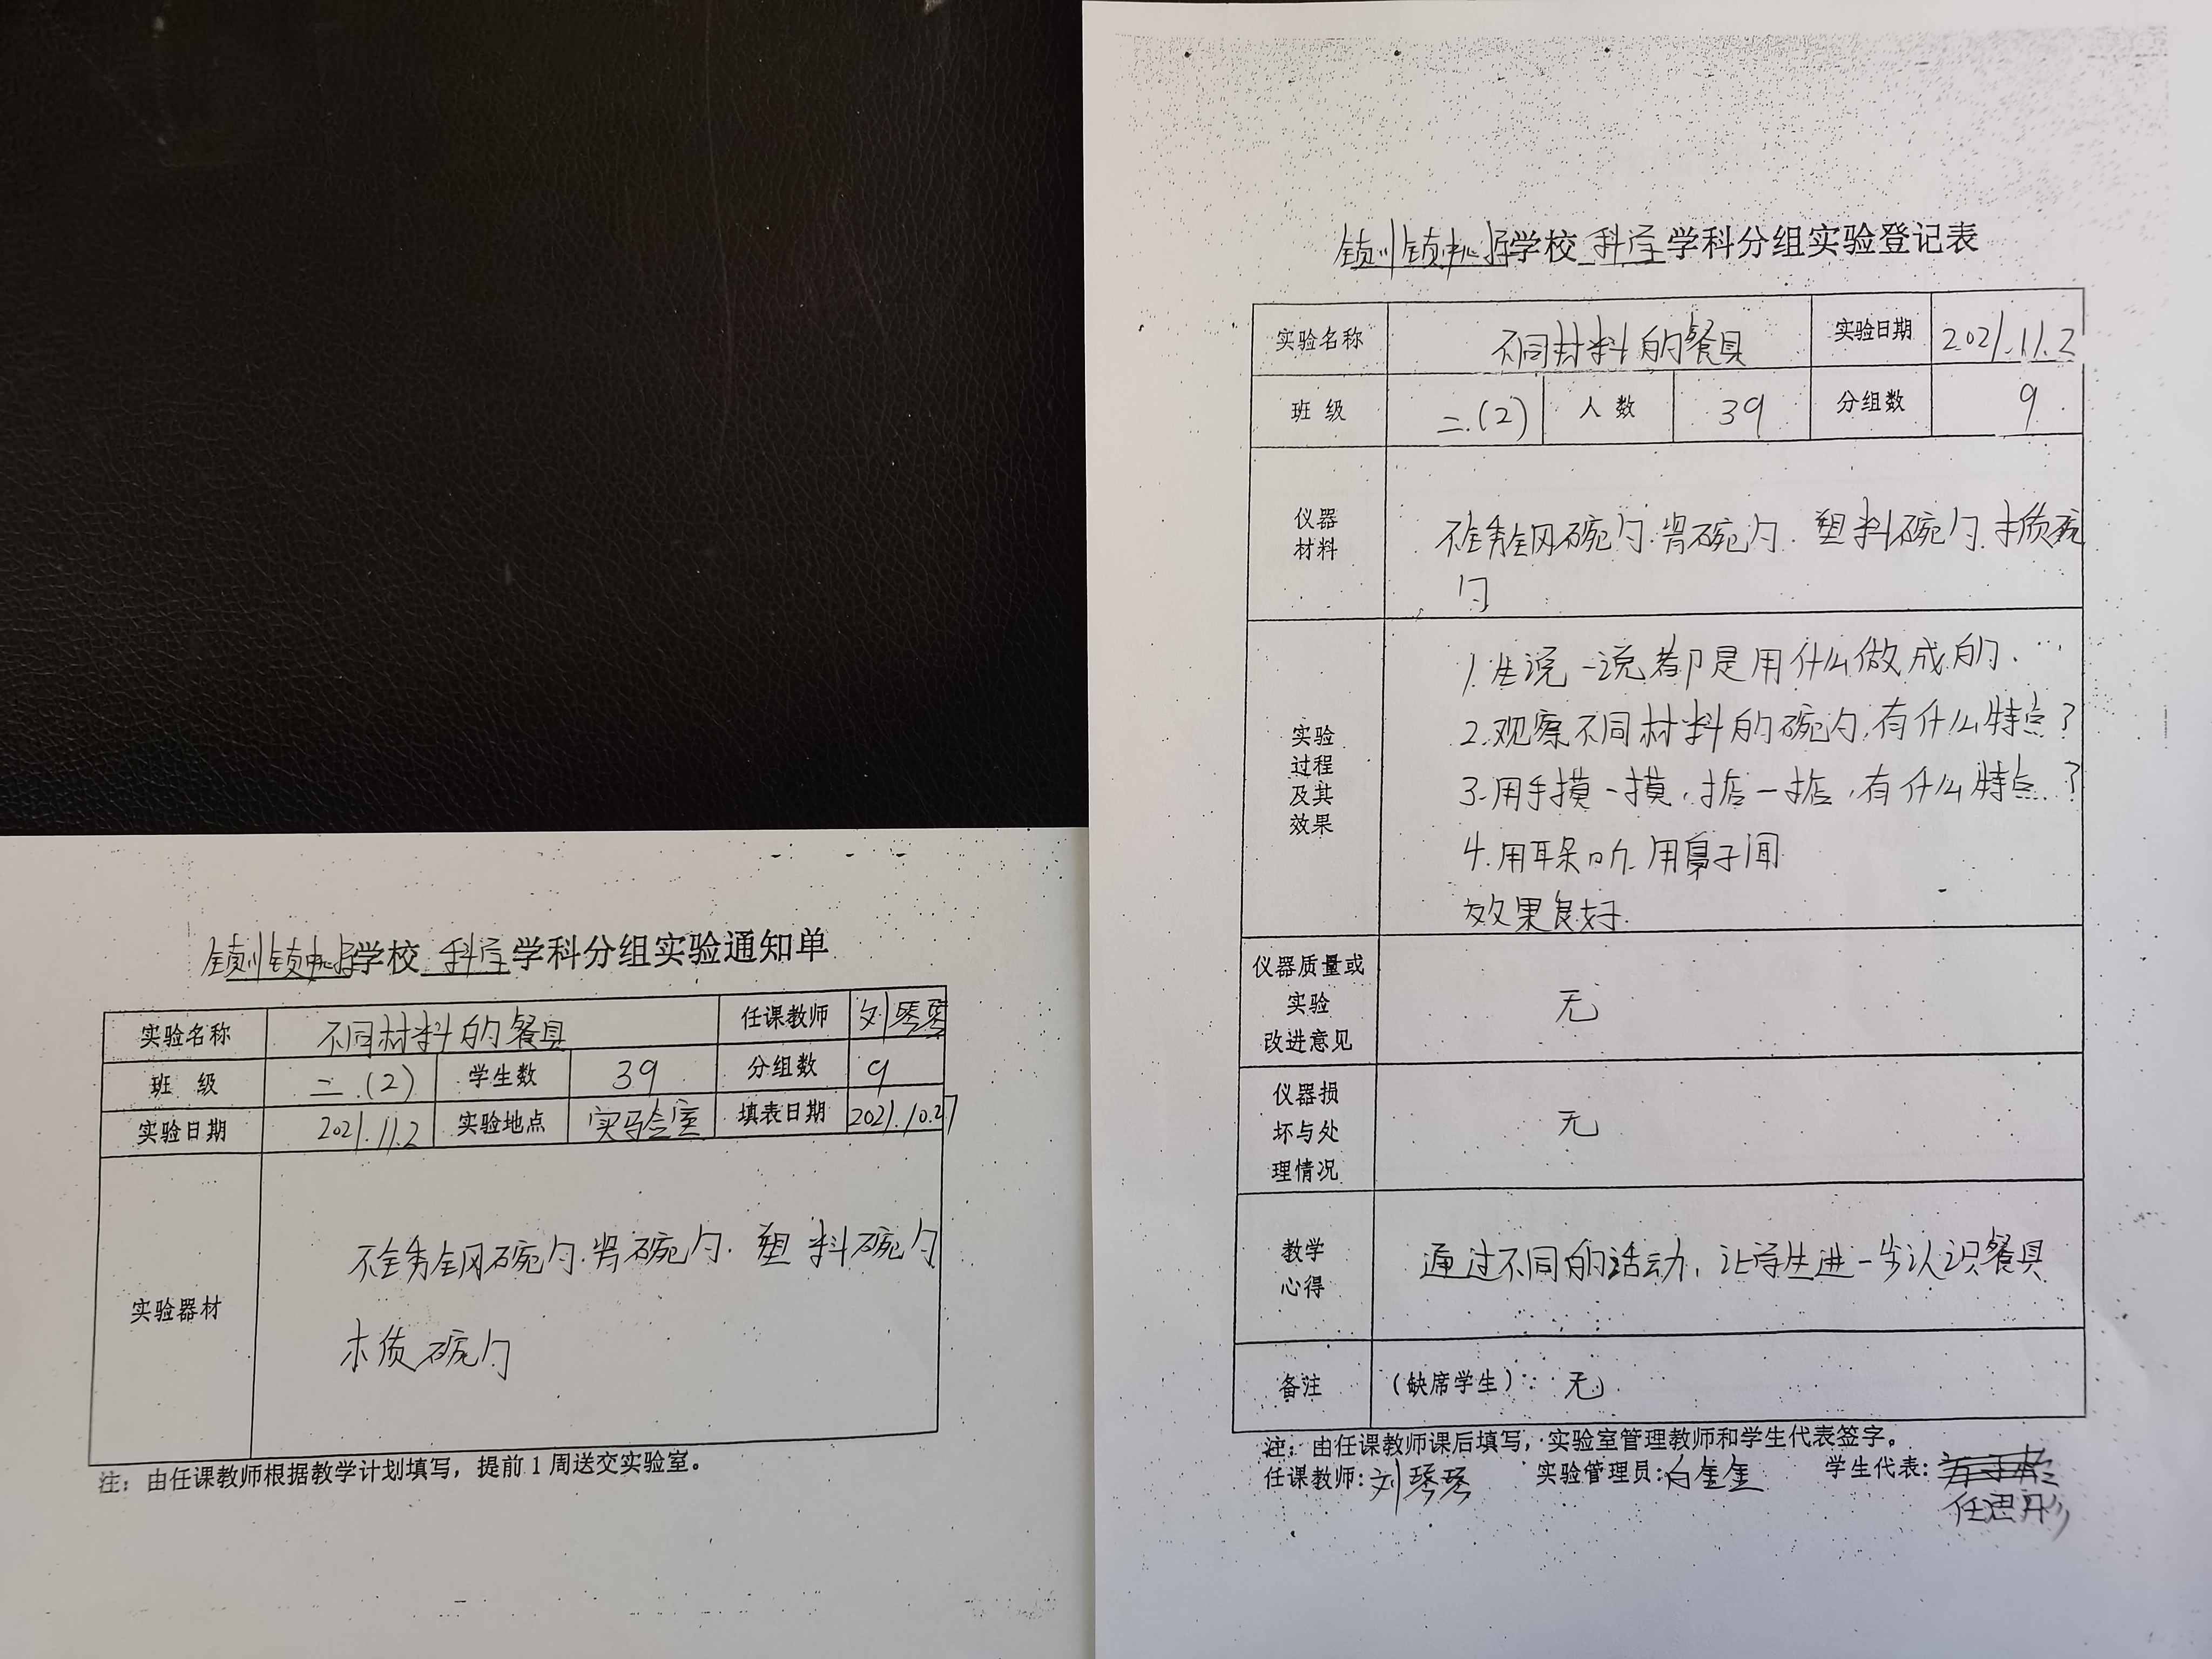 锁川镇中心学校 科学 学科分组实验通知单
实验名称 不同材料的餐具 任课教师 刘琴琴
班 级 二.(2) 学生数 39 分组数 9
实验日期 2021.11.2 实验地点 实验室 填表日期 2021.10.27
实验器材
不锈钢碗勺.瓷碗勺.塑料碗勺
木质碗勺
注：由任课教师根据教学计划填写，提前1周送交实验室。
学校 科学 学科分组实验登记表
实验名称 不同材料的餐具 实验日期 2021.11.2
班 级 二.(2) 人 数 39 分组数 9
仪器
材料
不锈钢碗勺.瓷碗勺.塑料碗勺.木质碗
勺
实验
过程
及其
效果
1.生说一说都是用什么做成的.
2.观察不同材料的碗勺,有什么特点？
3.用手摸一摸,掂一掂,有什么特点？
4.用耳朵听.用鼻子闻
效果良好.
仪器质量或
实验
改进意见
无
仪器损
坏与处
理情况
无
教学
心得
通过不同的活动,让学生进一步认识餐具
备注 （缺席学生）：无
注：由任课教师课后填写，实验室管理教师和学生代表签字。
任课教师：刘琴琴 实验管理员：白奎奎 学生代表：
任思彤